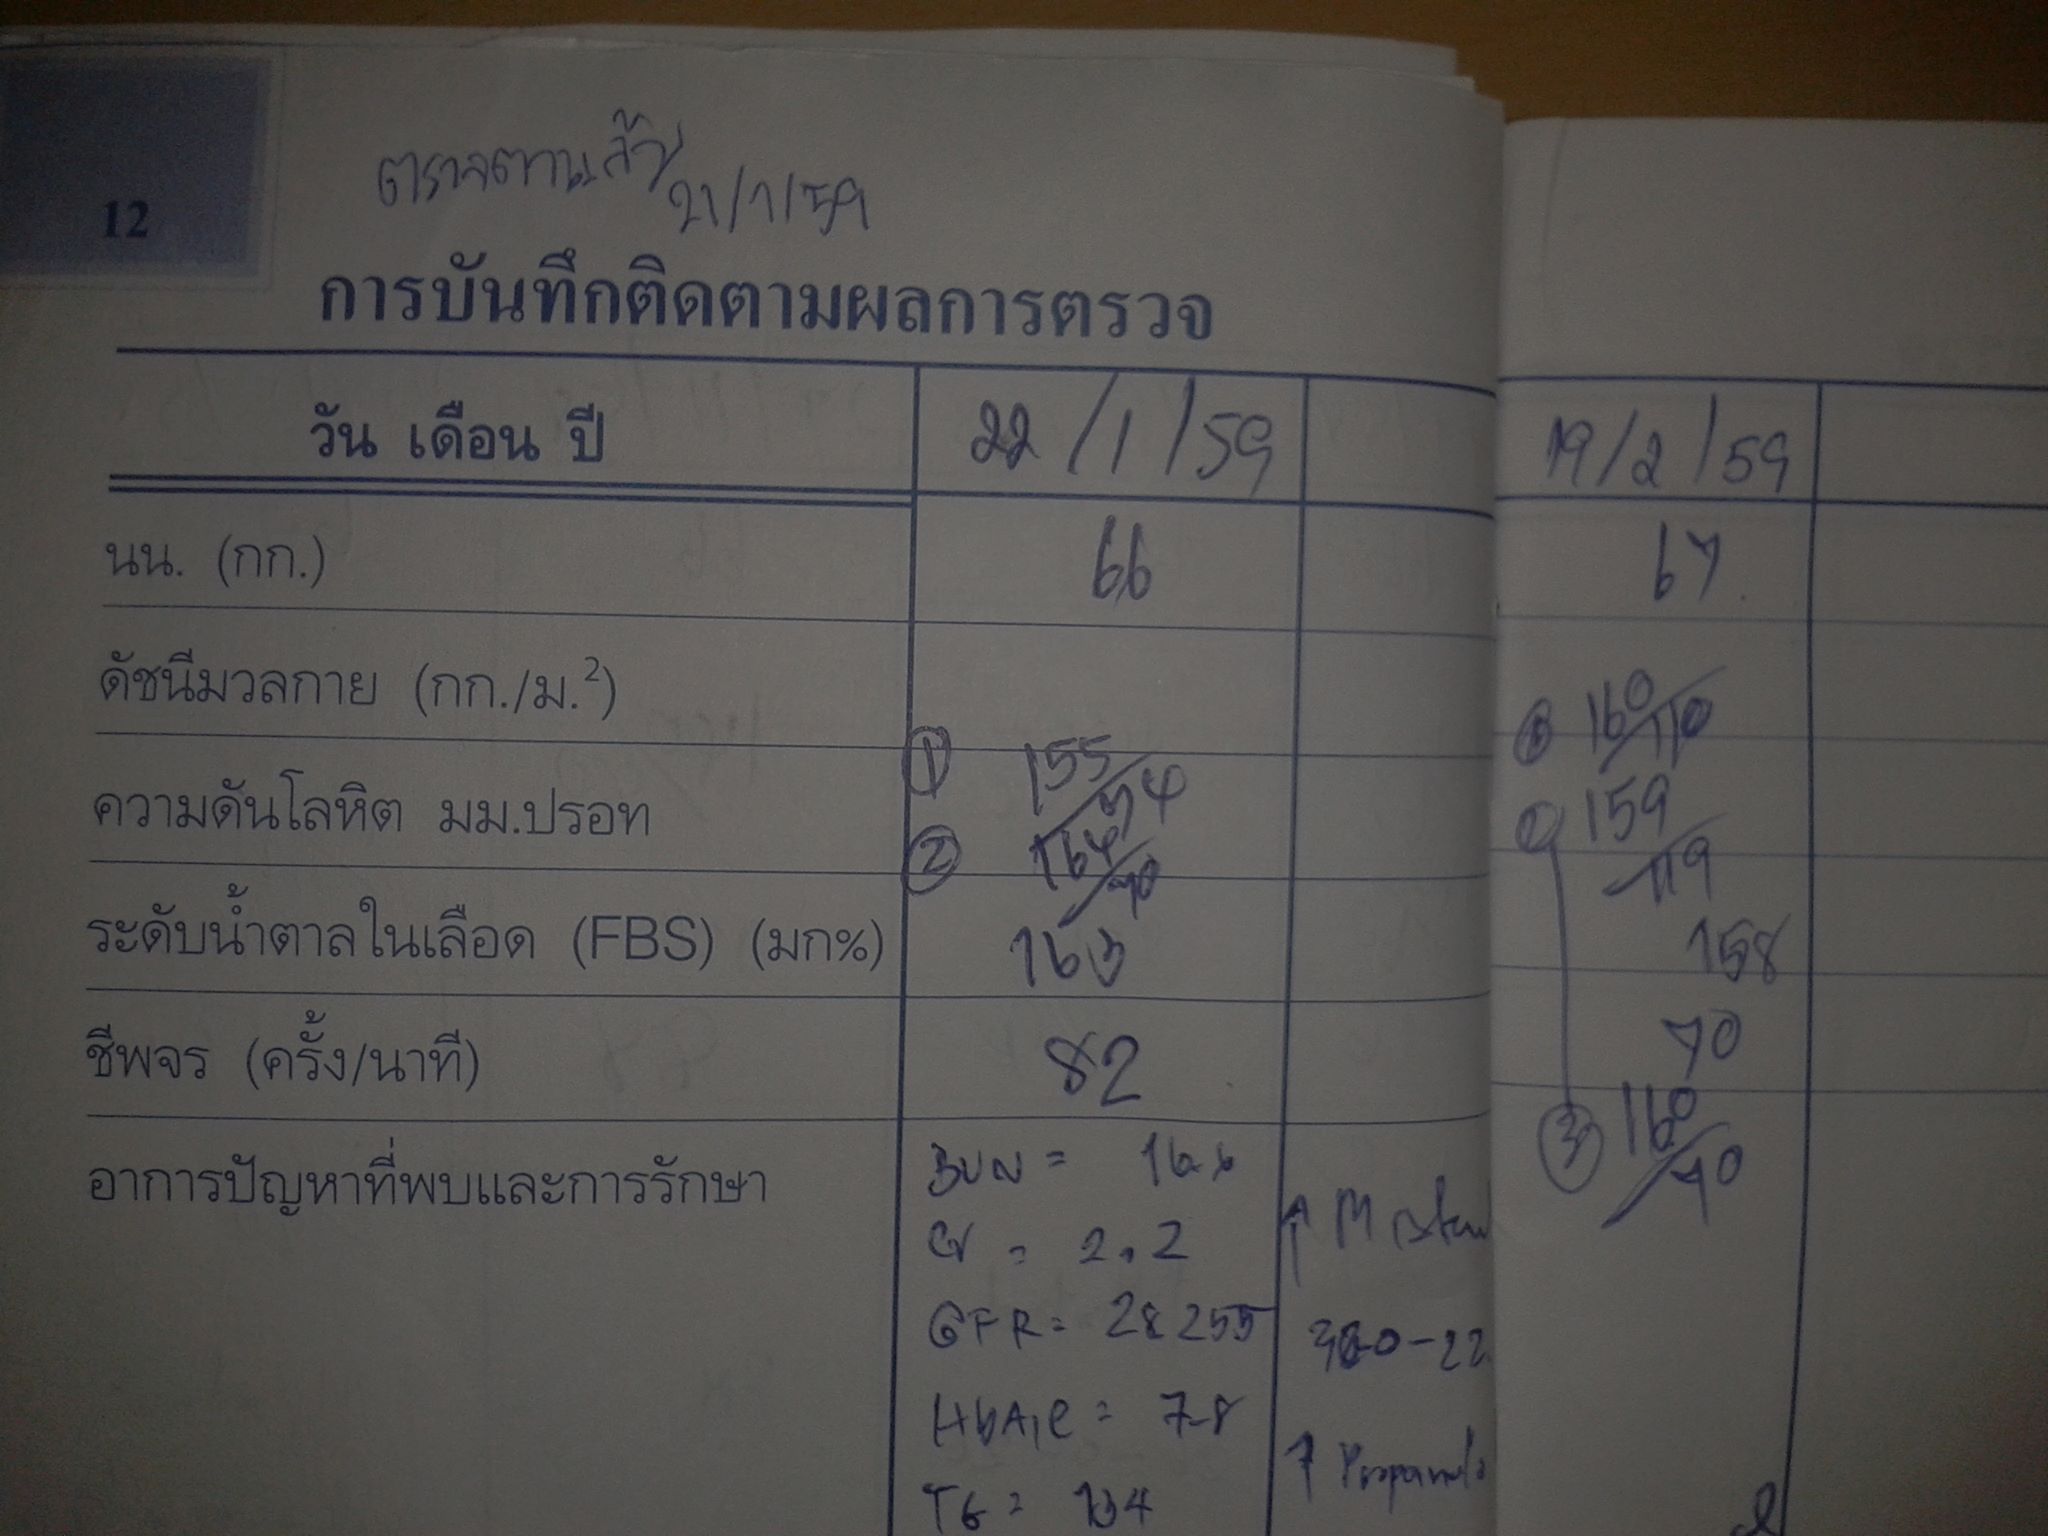 12
ตรวจตาแล้ว
21/1/59
การบันทึกติดตามผลการตรวจ
วัน เดือน ปี 22/1/59 19/2/59
นน. (กก.) 66 67
ดัชนีมวลกาย (กก./ม.²)
160/110
ความดันโลหิต มม.ปรอท ① 155/74 159/119
② 164/70
ระดับน้ำตาลในเลือด (FBS) (มก%) 163 158
ชีพจร (ครั้ง/นาที) 82 70
③ 160/70
อาการปัญหาที่พบและการรักษา BUN =
Cr = 2.2
GFR = 28.255
HbA1C = 7.8
TG = 134